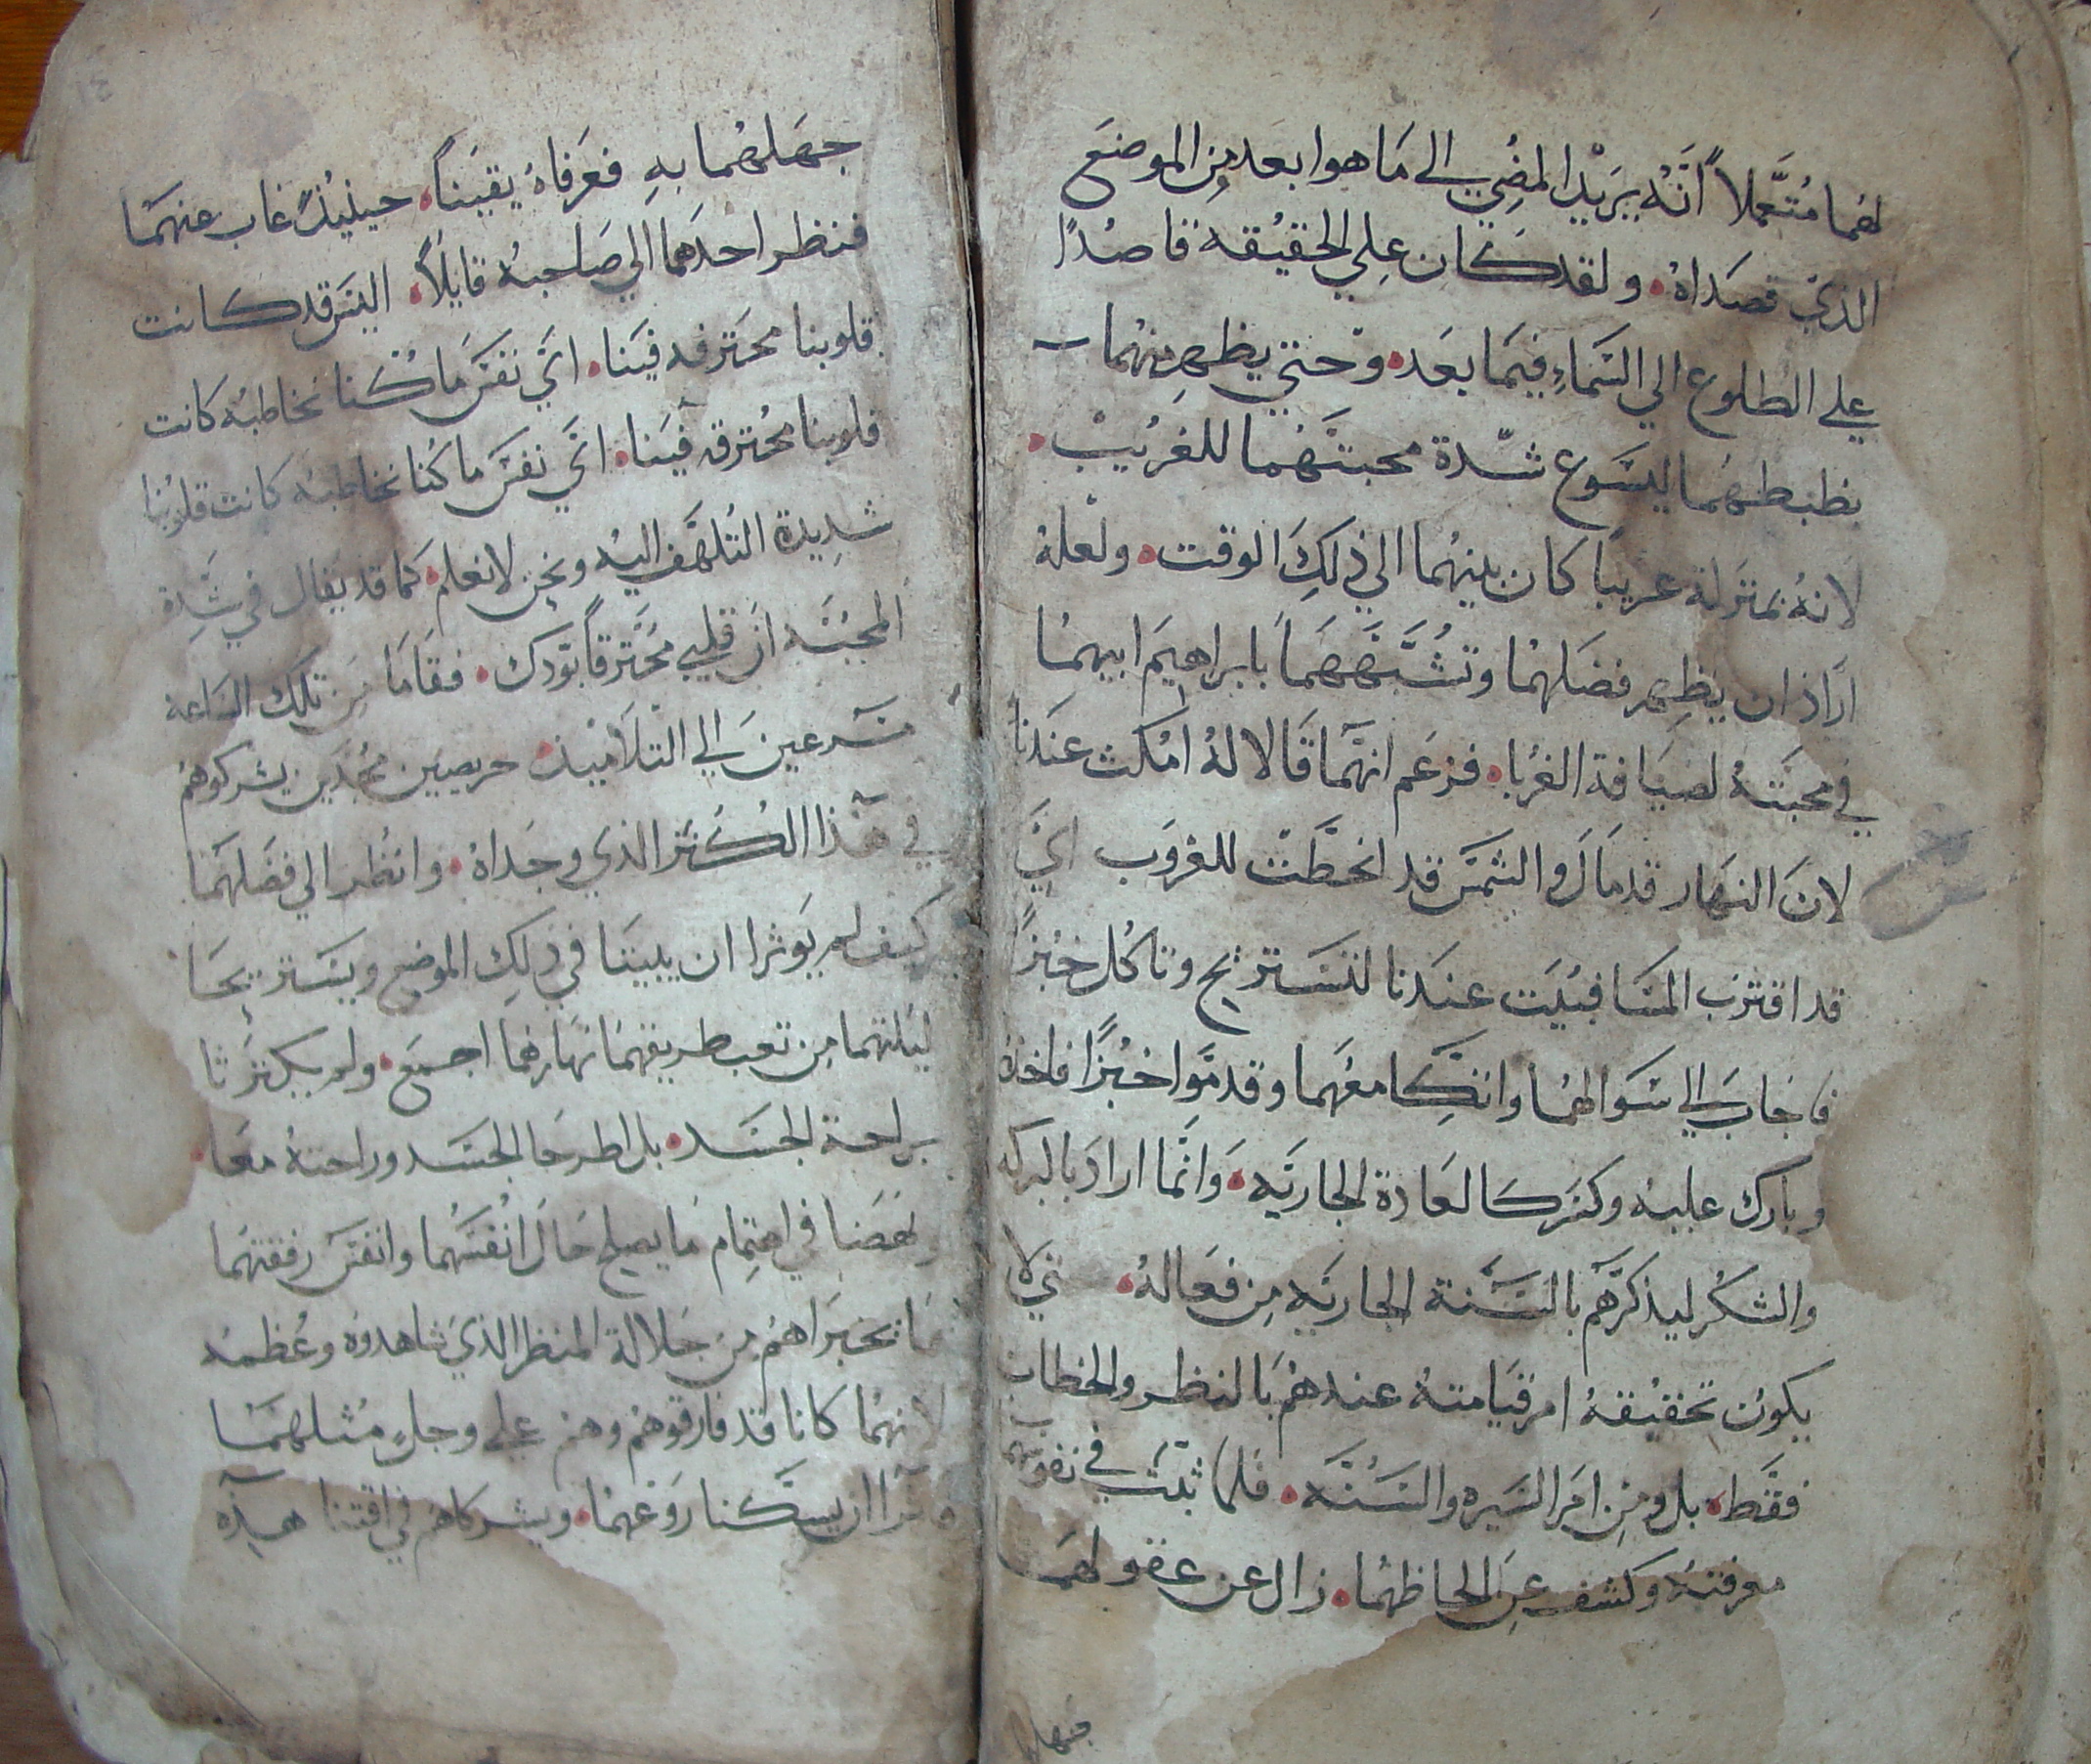 لهما متعملاً أنه يريد المضي الى ما هوا بعد من الموضع
الذي قصداه. ولقد كان علي الحقيقه قاصدًا
علي الطلوع الي السماء فيما بعد. وحتي يظهر منهما
بظبطهما ليسوع شدّة محبتهما للغريب.
لانه بمنزلة غريبا كان بينهما الي ذلك الوقت. ولعله
اراد ان يظهر فضلهما وتشبههما بابراهيم ابيهما
في محبته لضيافة الغربا. فزعم انهما قالا له امكث عندنا
لان النهار قد مال والشمس قد انحطت للغروب اي
قد اقترب المسا فبيت عندنا لتستريح وتاكل خبزًا
فاجاب الي سوالهما واتكا معهما وقدموا خبزًا فاخذه
وبارك عليه وكسر كالعادة الجاريه. وانما اراد بالبركه
والشكر ليذكرهم بالسنة الجاريه من فعاله. لا
يكون تحقيقه امر قيامته عندهم بالنظر والخطاب
فقط. بل ومن امر السيره والسنه. فلما ثبت في نفوسهما
معرفته وكشف عن الحاظهما. زال عن عقولهما
جهلهما
جهلهما به فعرفاه يقيناً. حينيذ غاب عنهما
فنظر احدهما الي صاحبه قايلاً. اليس قد كانت
قلوبنا محترفه فينا. اي نفس ما كنا نخاطبه كانت
قلوبنا محترقه فينا. اي نفس ما كنا نخاطبه كانت قلوبنا
شديدة التلهف اليه ونحن لا نعلم. كما قد يقال في شدة
المحبه ان قلبي محترقاً بودك. فقاما من تلك الساعة
مسرعين الي التلاميذ. حريصين مجدين يشركوهم
في هذا الكنز الذي وجداه. وانظر الي فضلهما
كيف لم يوثرا ان يبيتا في ذلك الموضع ويستريحا
ليلتهما من تعب طريقهما نهارهما اجمع. ولم يكترثا
براحة الجسد. بل اطرحا الجسد وراحته معا.
نهضا في اهتمام ما يصلح حال انفسهما وانفس رفقتهما
بما يخبراهم من جلالة المنظر الذي شاهدوه وعظمه
لانهما كانا قد فارقوهم وهم علي وجل مثلهما
ان يسكنا روعهما. ويشركاهم في اقتنا هذه